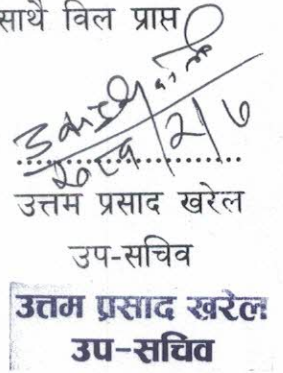 साथै विल प्राप्त
उत्तम प्रसाद खरेल
उप-सचिव
उत्तम प्रसाद खरेल
उप-सचिव